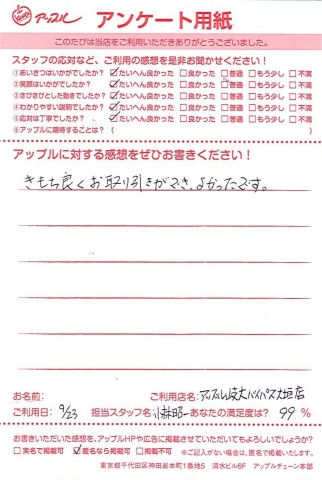 アップル アンケート用紙
このたびは当店をご利用いただきありがとうございました。
スタッフの応対など、ご利用の感想を是非お聞かせください！
①あいさつはいかがでしたか？ ☑たいへん良かった □良かった □普通 □もう少し □不満
②笑顔はいかがでしたか？ ☑たいへん良かった □良かった □普通 □もう少し □不満
③きびきびとした動きでしたか？ ☑たいへん良かった □良かった □普通 □もう少し □不満
④わかりやすい説明でしたか？ ☑たいへん良かった □良かった □普通 □もう少し □不満
⑤応対は丁寧でしたか？ ☑たいへん良かった □良かった □普通 □もう少し □不満
⑥アップルに期待することは？ ( )
アップルに対する感想をぜひお書きください！
きもち良くお取り引きができ、よかったです。
お名前: ご利用店名: アップル岐大バイパス大垣店
ご利用日: 9/23 担当スタッフ名: 小林昭一 あなたの満足度は？ 99 %
お書きいただいた感想を、アップルHPや広告に掲載させていただいてもよろしいでしょうか？
□実名で掲載可 ☑匿名なら掲載可 □掲載不可 ※ご記入がない場合は、匿名で掲載いたします。
東京都千代田区神田岩本町1番地5 清水ビル6F アップルチェーン本部